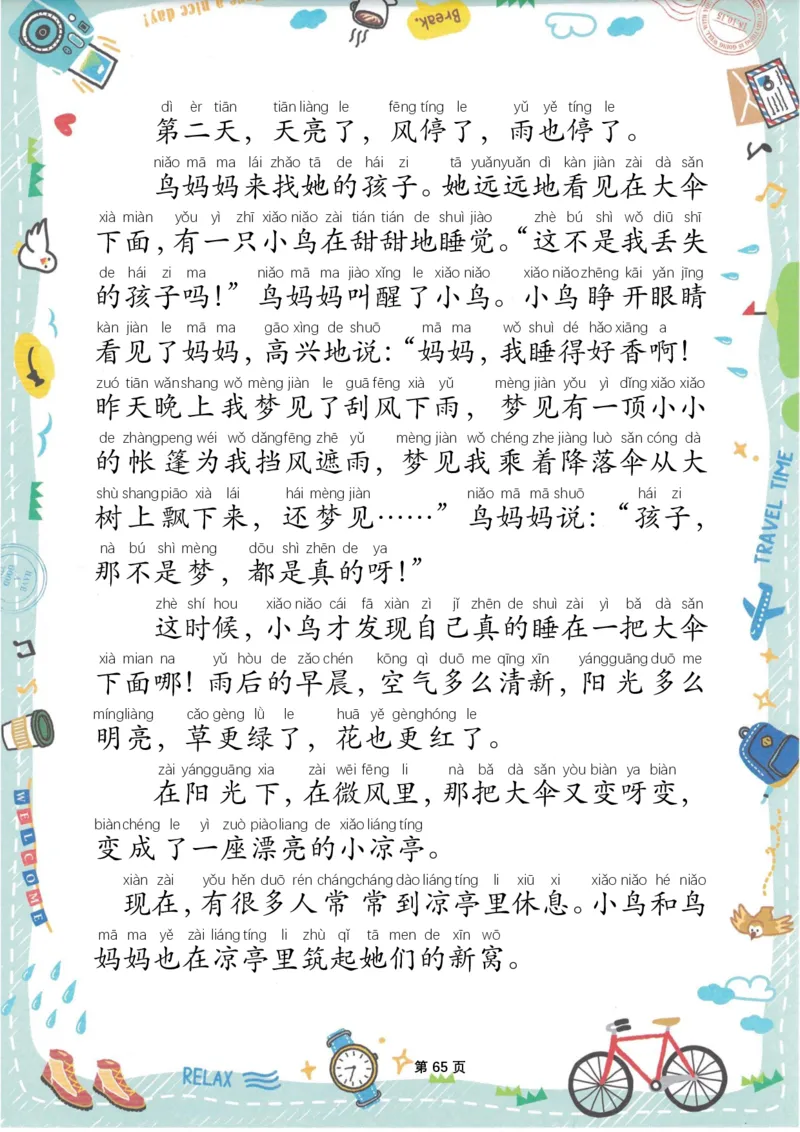 Have a nice day!
Break.
dì èr tiān tiān liàng le fēng tíng le yǔ yě tíng le
第二天，天亮了，风停了，雨也停了。
niǎo mā ma lái zhǎo tā de hái zi tā yuǎnyuǎn dì kàn jiàn zài dà sǎn
鸟妈妈来找她的孩子。她远远地看见在大伞
xià miàn yǒu yì zhī xiǎo niǎo zài tián tián de shuì jiào zhè bú shì wǒ diū shī
下面，有一只小鸟在甜甜地睡觉。“这不是我丢失
de hái zi ma niǎo mā ma jiào xǐng le xiǎo niǎo xiǎo niǎo zhēng kāi yǎn jīng
的孩子吗！”鸟妈妈叫醒了小鸟。小鸟睁开眼睛
kàn jiàn le mā ma gāo xìng de shuō mā ma wǒ shuì dé hǎo xiāng a
看见了妈妈，高兴地说：“妈妈，我睡得好香啊！
zuó tiān wǎnshang wǒ mèng jiàn le guā fēng xià yǔ mèng jiàn yǒu yì dǐng xiǎo xiǎo
昨天晚上我梦见了刮风下雨，梦见有一顶小小
de zhàngpeng wéi wǒ dǎngfēng zhē yǔ mèng jiàn wǒ chéng zhe jiàng luò sǎn cóng dà
的帐篷为我挡风遮雨，梦见我乘着降落伞从大
shù shang piāo xià lái hái mèng jiàn niǎo mā mā shuō hái zi
树上飘下来，还梦见……”鸟妈妈说：“孩子，
nà bú shì mèng dōu shì zhēn de ya
那不是梦，都是真的呀！”
zhè shí hou xiǎo niǎo cái fā xiàn zì jǐ zhēn de shuì zài yì bǎ dà sǎn
这时候，小鸟才发现自己真的睡在一把大伞
xià mian na yǔ hòu de zǎo chén kōng qì duō me qīng xīn yángguāng duō me
下面哪！雨后的早晨，空气多么清新，阳光多么
míngliàng cǎo gèng lǜ le huā yě gènghóng le
明亮，草更绿了，花也更红了。
zài yángguāng xia zài wēi fēng li nà bǎ dà sǎn yòu biàn ya biàn
在阳光下，在微风里，那把大伞又变呀变，
biànchéng le yì zuò piàoliang de xiǎo liáng tíng
变成了一座漂亮的小凉亭。
xiàn zài yǒu hěn duō rén chángcháng dào liáng tíng li xiū xi xiǎo niǎo hé niǎo
现在，有很多人常常到凉亭里休息。小鸟和鸟
mā ma yě zài liáng tíng li zhù qǐ tā men de xīn wō
妈妈也在凉亭里筑起她们的新窝。
TRAVEL TIME
WELCOME
RELAX
第 65 页